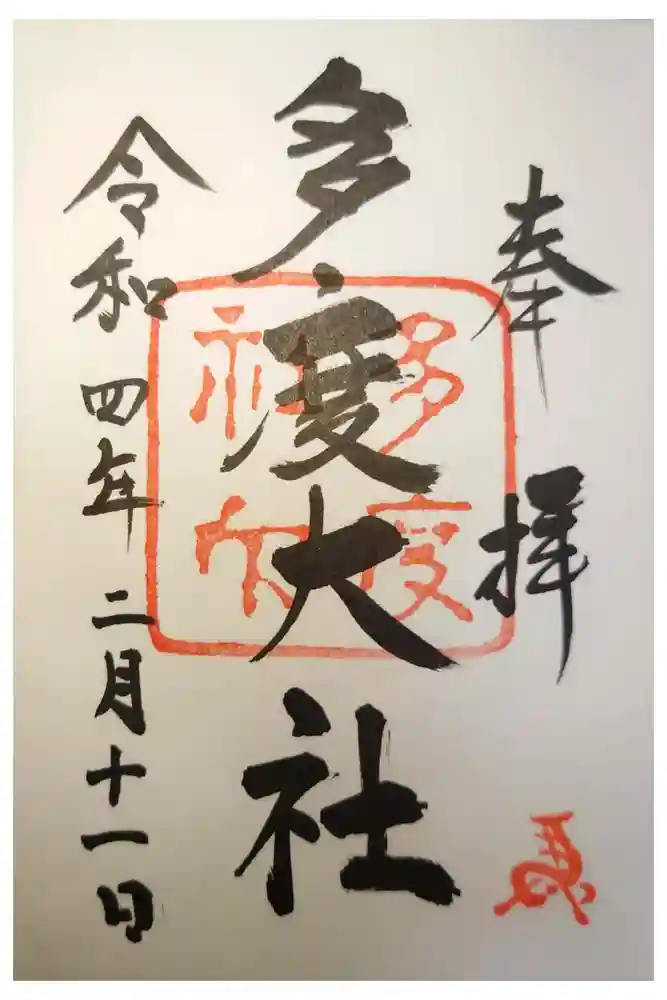 奉拝
多度大社
令和四年二月十一日
多度
馬